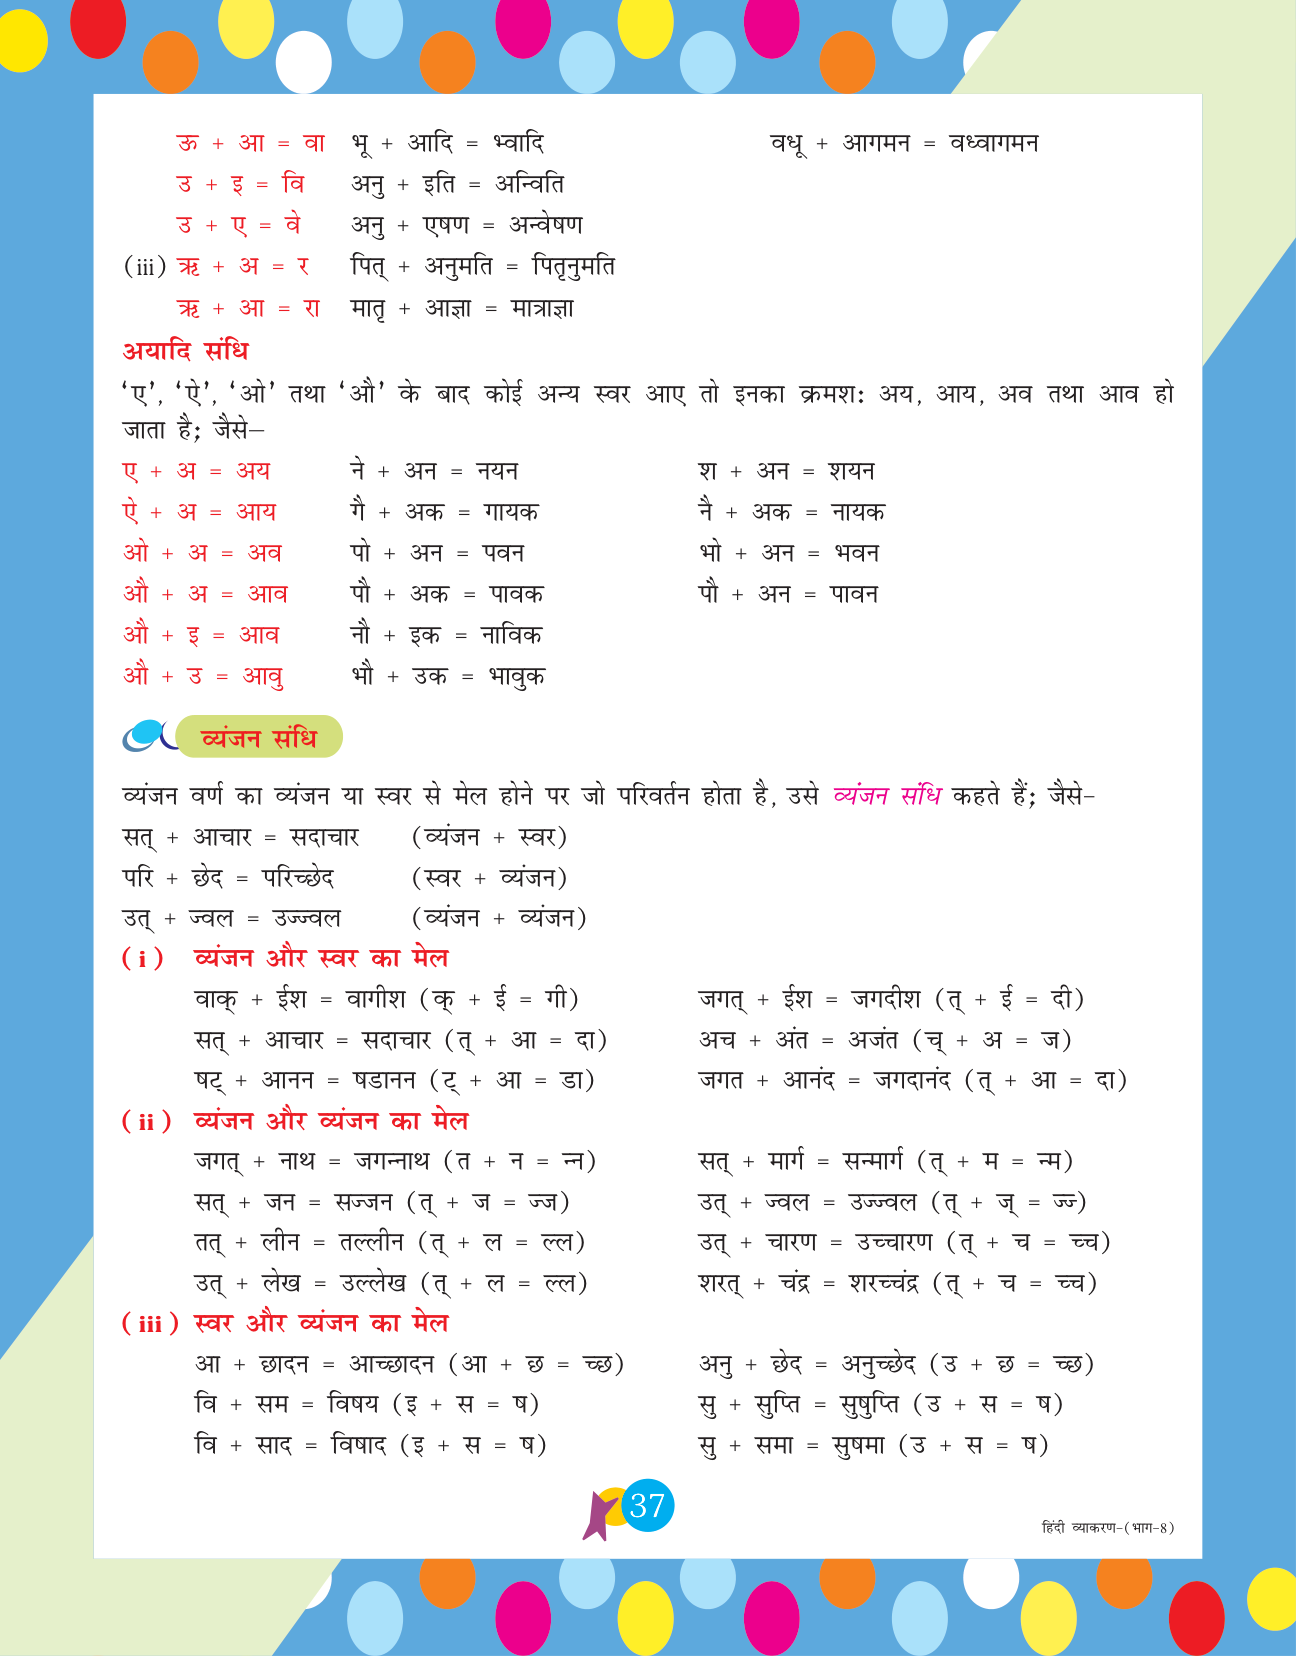 ऊ + आ = वा भू + आदि = भ्वादि वधू + आगमन = वध्वागमन
उ + इ = वि अनु + इति = अन्विति
उ + ए = वे अनु + एषण = अन्वेषण
(iii) ऋ + अ = र पित् + अनुमति = पितृनुमति
ऋ + आ = रा मातृ + आज्ञा = मात्राज्ञा
अयादि संधि
‘ए’, ‘ऐ’, ‘ओ’ तथा ‘औ’ के बाद कोई अन्य स्वर आए तो इनका क्रमशः अय, आय, अव तथा आव हो
जाता है; जैसे–
ए + अ = अय ने + अन = नयन श + अन = शयन
ऐ + अ = आय गै + अक = गायक नै + अक = नायक
ओ + अ = अव पो + अन = पवन भो + अन = भवन
औ + अ = आव पौ + अक = पावक पौ + अन = पावन
औ + इ = आव नौ + इक = नाविक
औ + उ = आवु भौ + उक = भावुक
व्यंजन संधि
व्यंजन वर्ण का व्यंजन या स्वर से मेल होने पर जो परिवर्तन होता है, उसे व्यंजन संधि कहते हैं; जैसे-
सत् + आचार = सदाचार (व्यंजन + स्वर)
परि + छेद = परिच्छेद (स्वर + व्यंजन)
उत् + ज्वल = उज्ज्वल (व्यंजन + व्यंजन)
(i) व्यंजन और स्वर का मेल
वाक् + ईश = वागीश (क् + ई = गी) जगत् + ईश = जगदीश (त् + ई = दी)
सत् + आचार = सदाचार (त् + आ = दा) अच + अंत = अजंत (च् + अ = ज)
षट् + आनन = षडानन (ट् + आ = डा) जगत + आनंद = जगदानंद (त् + आ = दा)
(ii) व्यंजन और व्यंजन का मेल
जगत् + नाथ = जगन्नाथ (त + न = न्न) सत् + मार्ग = सन्मार्ग (त् + म = न्म)
सत् + जन = सज्जन (त् + ज = ज्ज) उत् + ज्वल = उज्ज्वल (त् + ज् = ज्ज्)
तत् + लीन = तल्लीन (त् + ल = ल्ल) उत् + चारण = उच्चारण (त् + च = च्च)
उत् + लेख = उल्लेख (त् + ल = ल्ल) शरत् + चंद्र = शरच्चंद्र (त् + च = च्च)
(iii) स्वर और व्यंजन का मेल
आ + छादन = आच्छादन (आ + छ = च्छ) अनु + छेद = अनुच्छेद (उ + छ = च्छ)
वि + सम = विषय (इ + स = ष) सु + सुप्ति = सुषुप्ति (उ + स = ष)
वि + साद = विषाद (इ + स = ष) सु + समा = सुषमा (उ + स = ष)
37
हिंदी व्याकरण-(भाग-8)